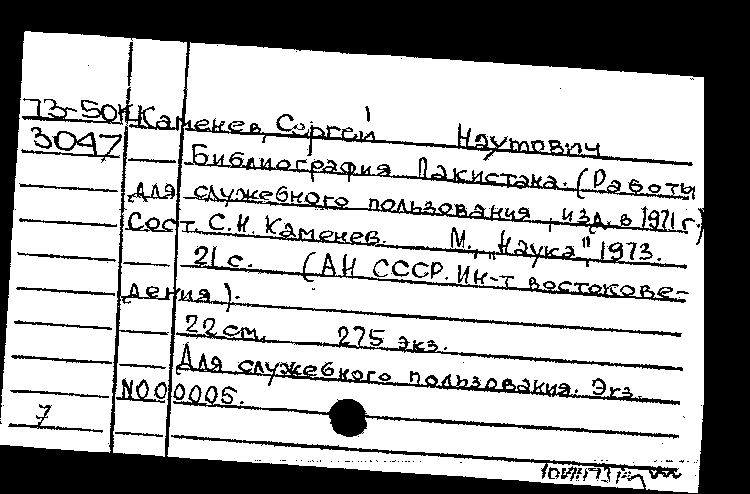 73-50К Каменев, Сергей Наумович
3047
Библиография Пакистана. (Работы
для служебного пользования, изд. в 1971 г.)
Сост. С.Н. Каменев. М., "Наука", 1973.
21 с. (АН СССР. Ин-т востокове-
дения).
22 см. 275 экз.
Для служебного пользования. Экз.
N000005.
7